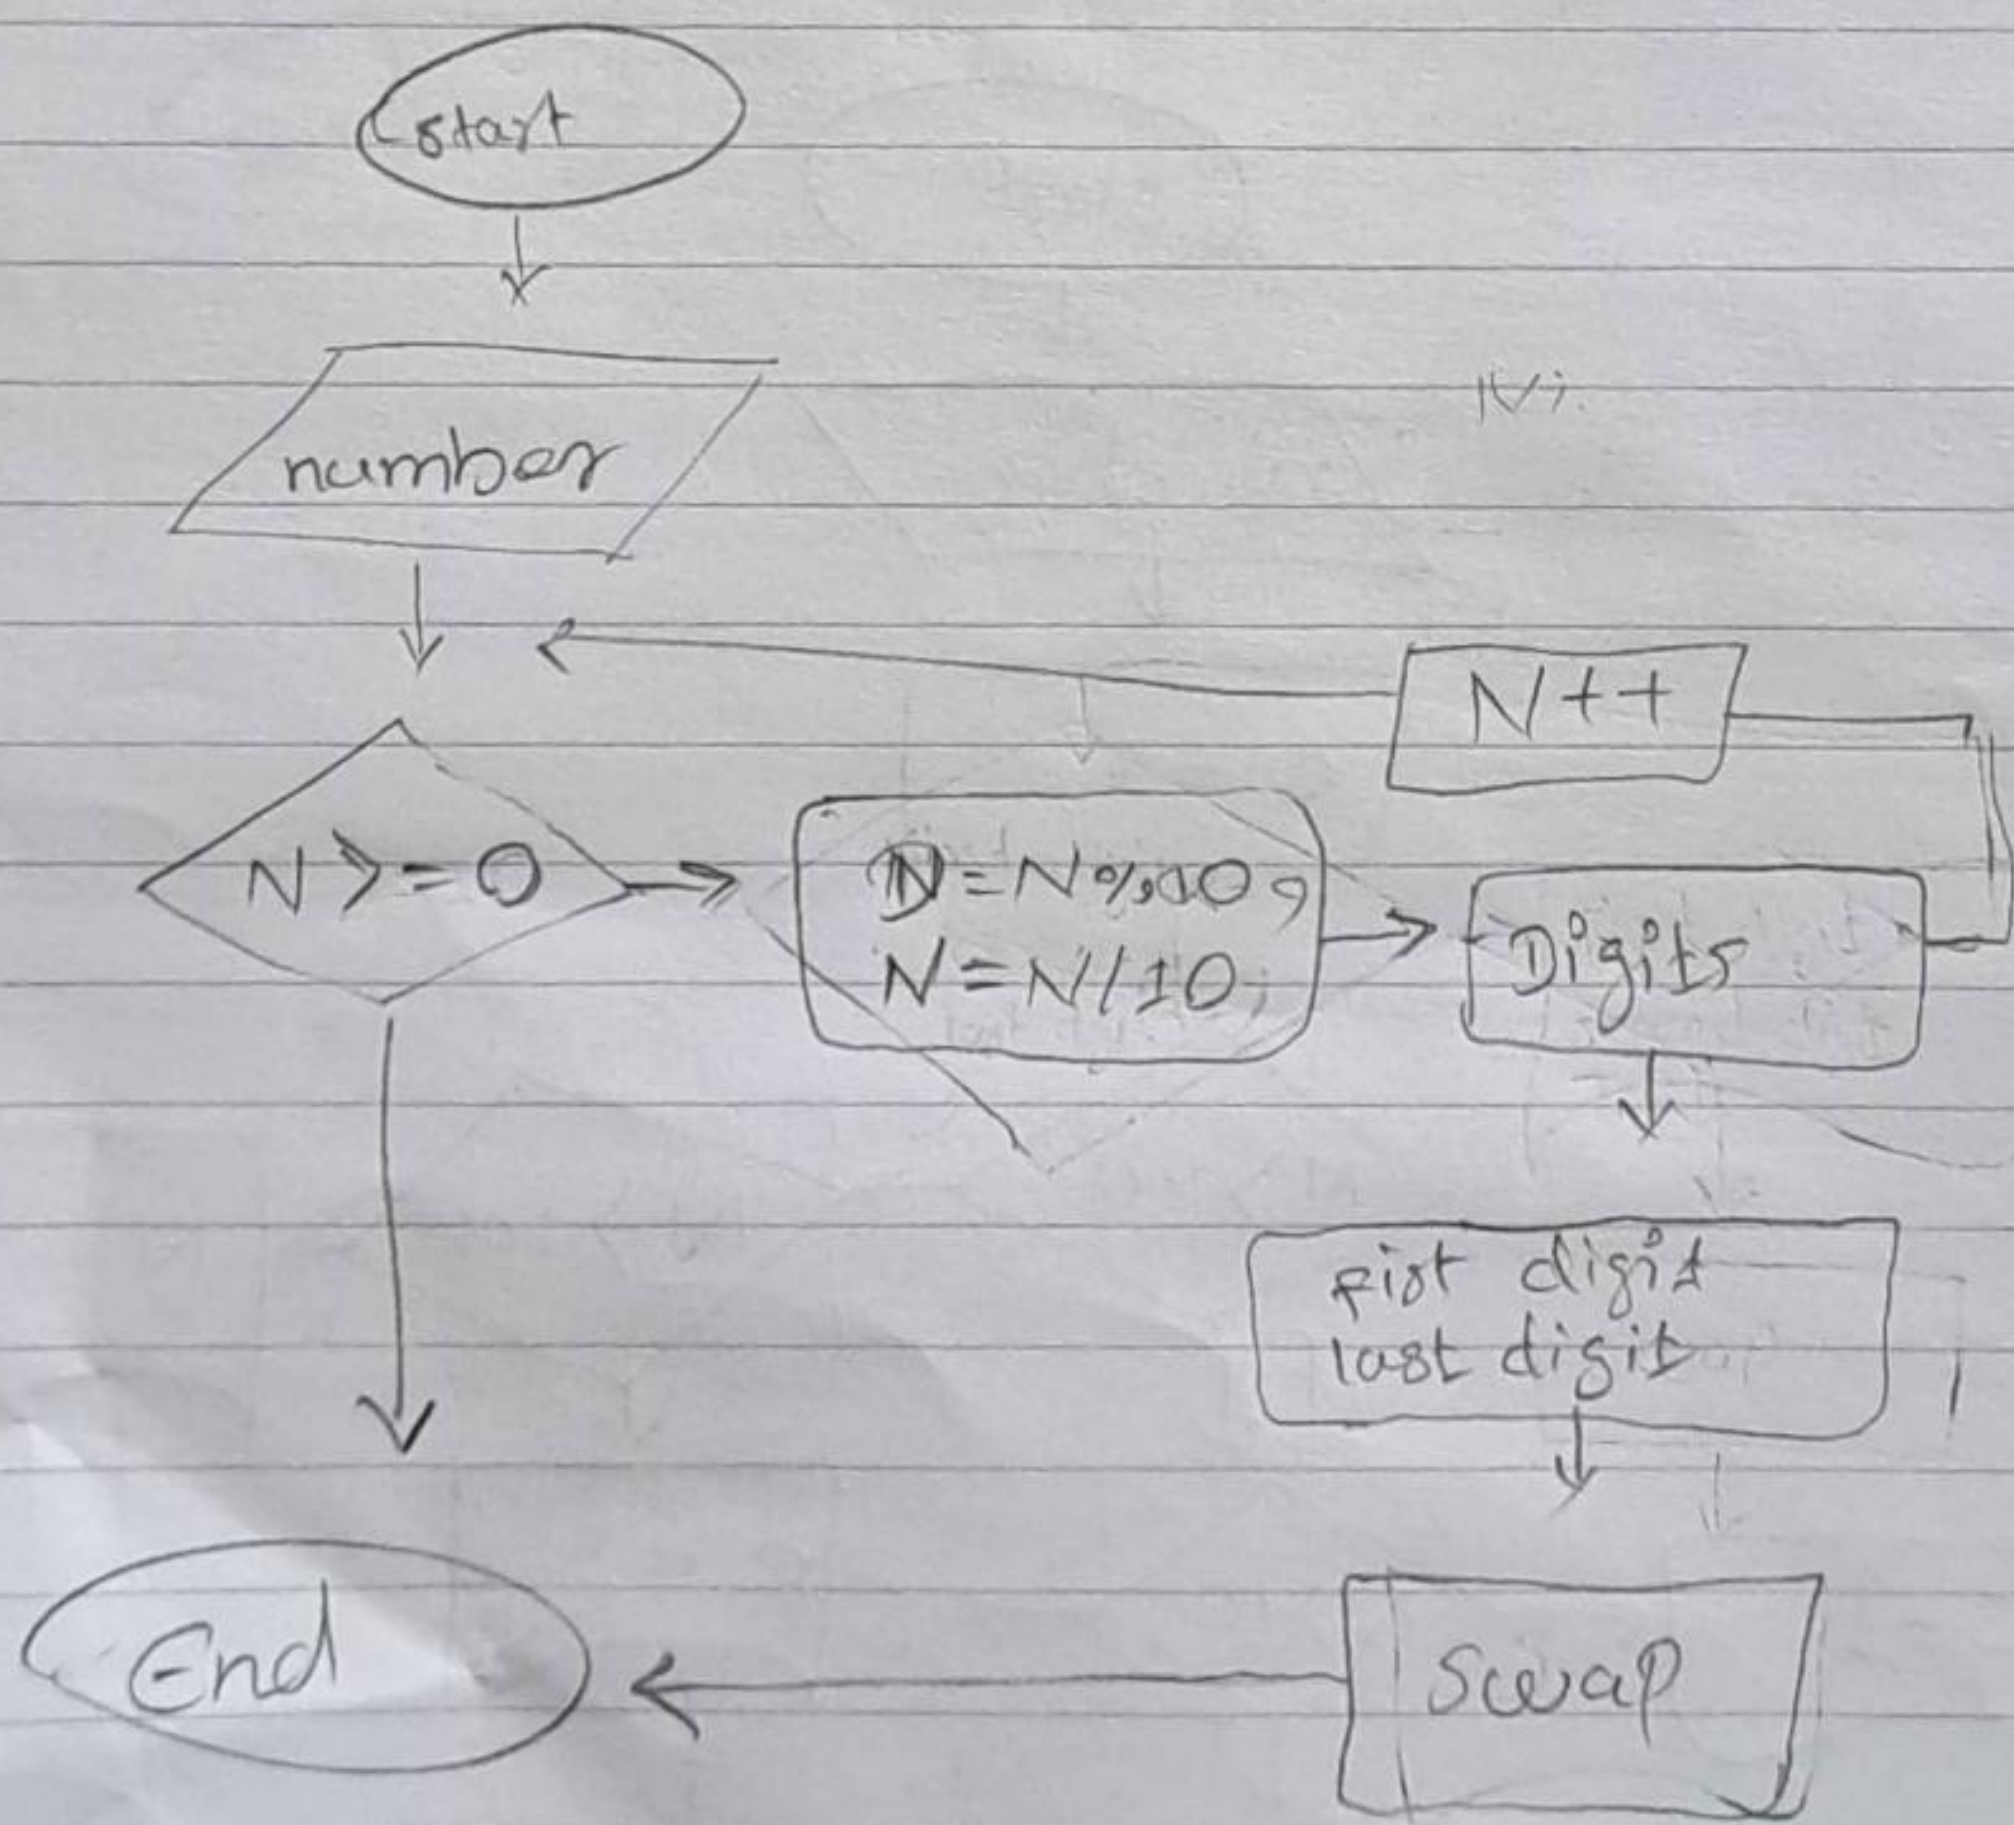 start
number
N++
N >= 0
D = N%10,
N = N/10;
Digits
fist digit
last digit
Swap
End